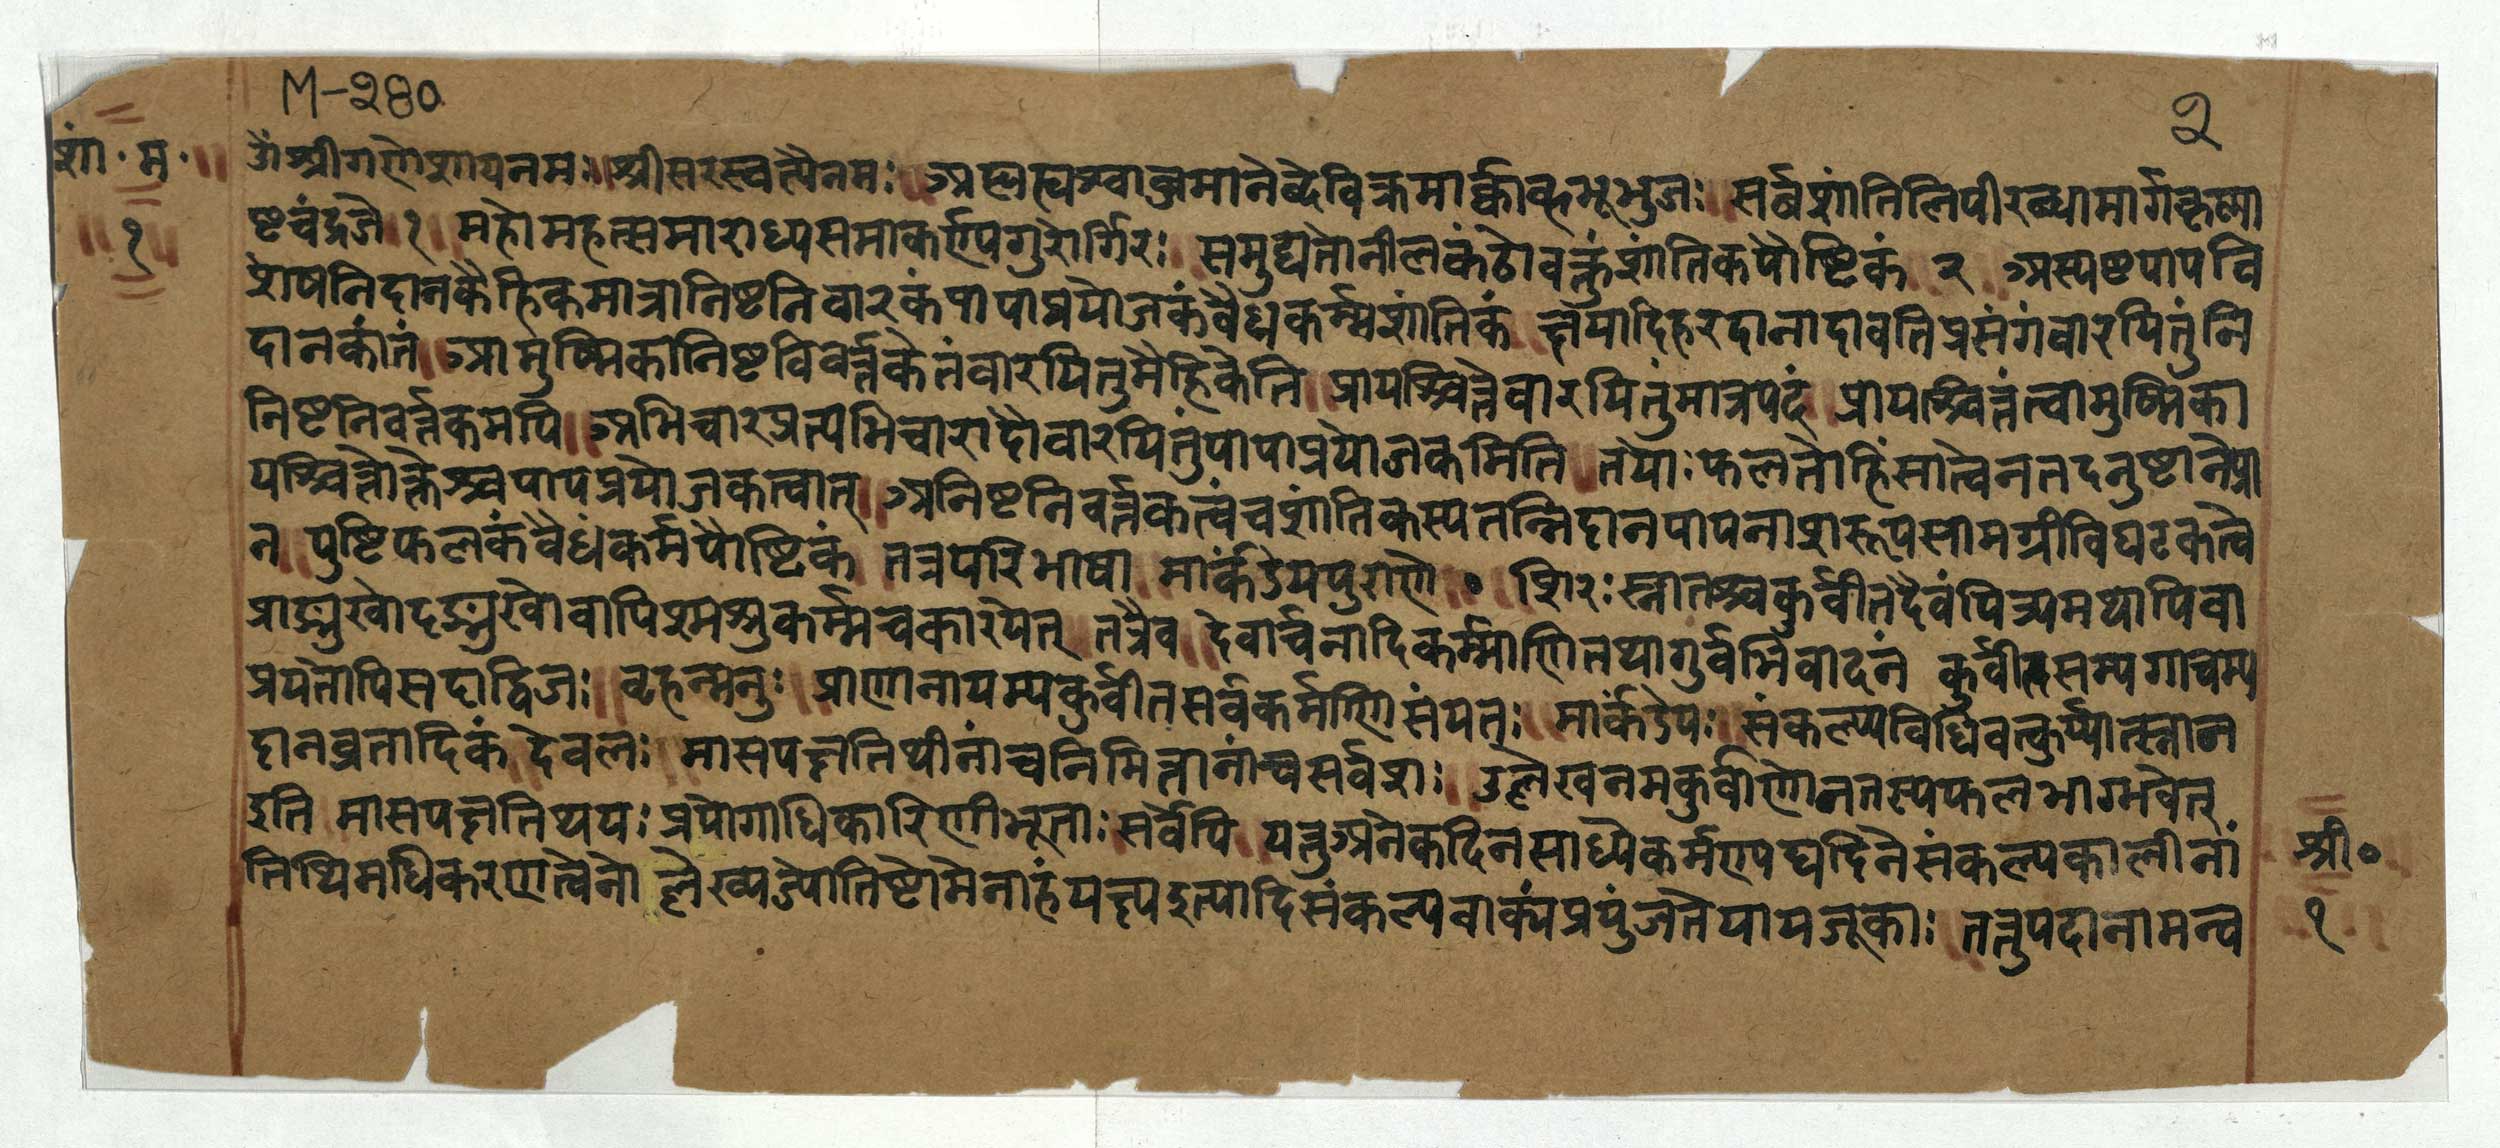 M-२४०
२
शां॰ म॰ ॥ ॐ श्रीगणेशायनमः ॥ श्रीसरस्वत्यैनमः ॥ भूभुजः ॥ सर्वशांतिलिपीरब्धामार्गकृष्णा
१ ष्टचंद्रजे १ महोमहत्समाराध्यसमाकर्ण्यगुरोर्गिरः ॥ समुद्यतोनीलकंठोवक्तुंशांतिकपौष्टिकं २ ॥ अस्पष्टपापवि
शेषनिदानकैहिकमात्रानिष्टनिवारकंपापाप्रयोजकंवैधकर्म्मशांतिकं ॥ क्षयादिहरदानादावतिप्रसंगंवारयितुंनि
दानकांतं ॥ आमुष्मिकानिष्टविवर्त्तकेतंवारयितुमैहिकेति ॥ प्रायश्चित्तेवारयितुंमात्रपदं ॥ प्रायश्चित्तंत्वामुष्मिका
निष्टनिवर्त्तकमपि ॥ अभिचारप्रत्यभिचारादौवारयितुंपापाप्रयोजकमिति ॥ तयोः फलतोहिंसात्वेनतदनुष्टानेप्रा
यश्चित्तोक्तेश्चपापप्रयोजकत्वात् ॥ अनिष्टनिवर्त्तकत्वंचशांतिकस्यतन्निदानपापनाशरूपसामग्रीविघटकत्वे
न ॥ पुष्टिफलकंवैधंकर्मपौष्टिकं ॥ तत्रपरिभाषा ॥ मार्कंडेयपुराणे ॰ शिरःस्नातश्चकुर्वीतदैवंपित्र्यमथापिवा
प्राङ्मुखोदङ्मुखोवापिश्मश्रुकर्म्मचकारयेत् ॥ तत्रैव ॥ देवार्चनादिकर्म्माणितथागुर्वभिवादनं ॥ कुर्वीतसम्यगाचम्य
प्रयतोपिसदाद्विजः ॥ वृहन्मनुः ॥ प्राणानायम्यकुर्वीतसर्वकर्मणिसंयत् ॥ मार्कंडेयः ॥ संकल्प्यविधिवत्कुर्य्यात्स्नान
दानव्रतादिकं ॥ देवलः ॥ मासपक्षतिथीनांचनिमित्तानांचसर्वशः ॥ उल्लेखनमकुर्वाणोनतस्यफलभाग्भवेत्
इति ॥ मासपक्षतिथयः प्रयोगाधिकारिणीभूताः सर्वेपि ॥ यत्तुअनेकदिनसाध्येकर्मण्यद्यदिनेसंकल्पकालीनां
तिथिमधिकरणत्वेनोल्लेख्यज्योतिष्टोमेनाहंयक्ष्यइत्यादिसंकल्पवाक्यंप्रयुंजतेयायजूकाः ॥ तत्तुपदानामन्व
श्री॰
१